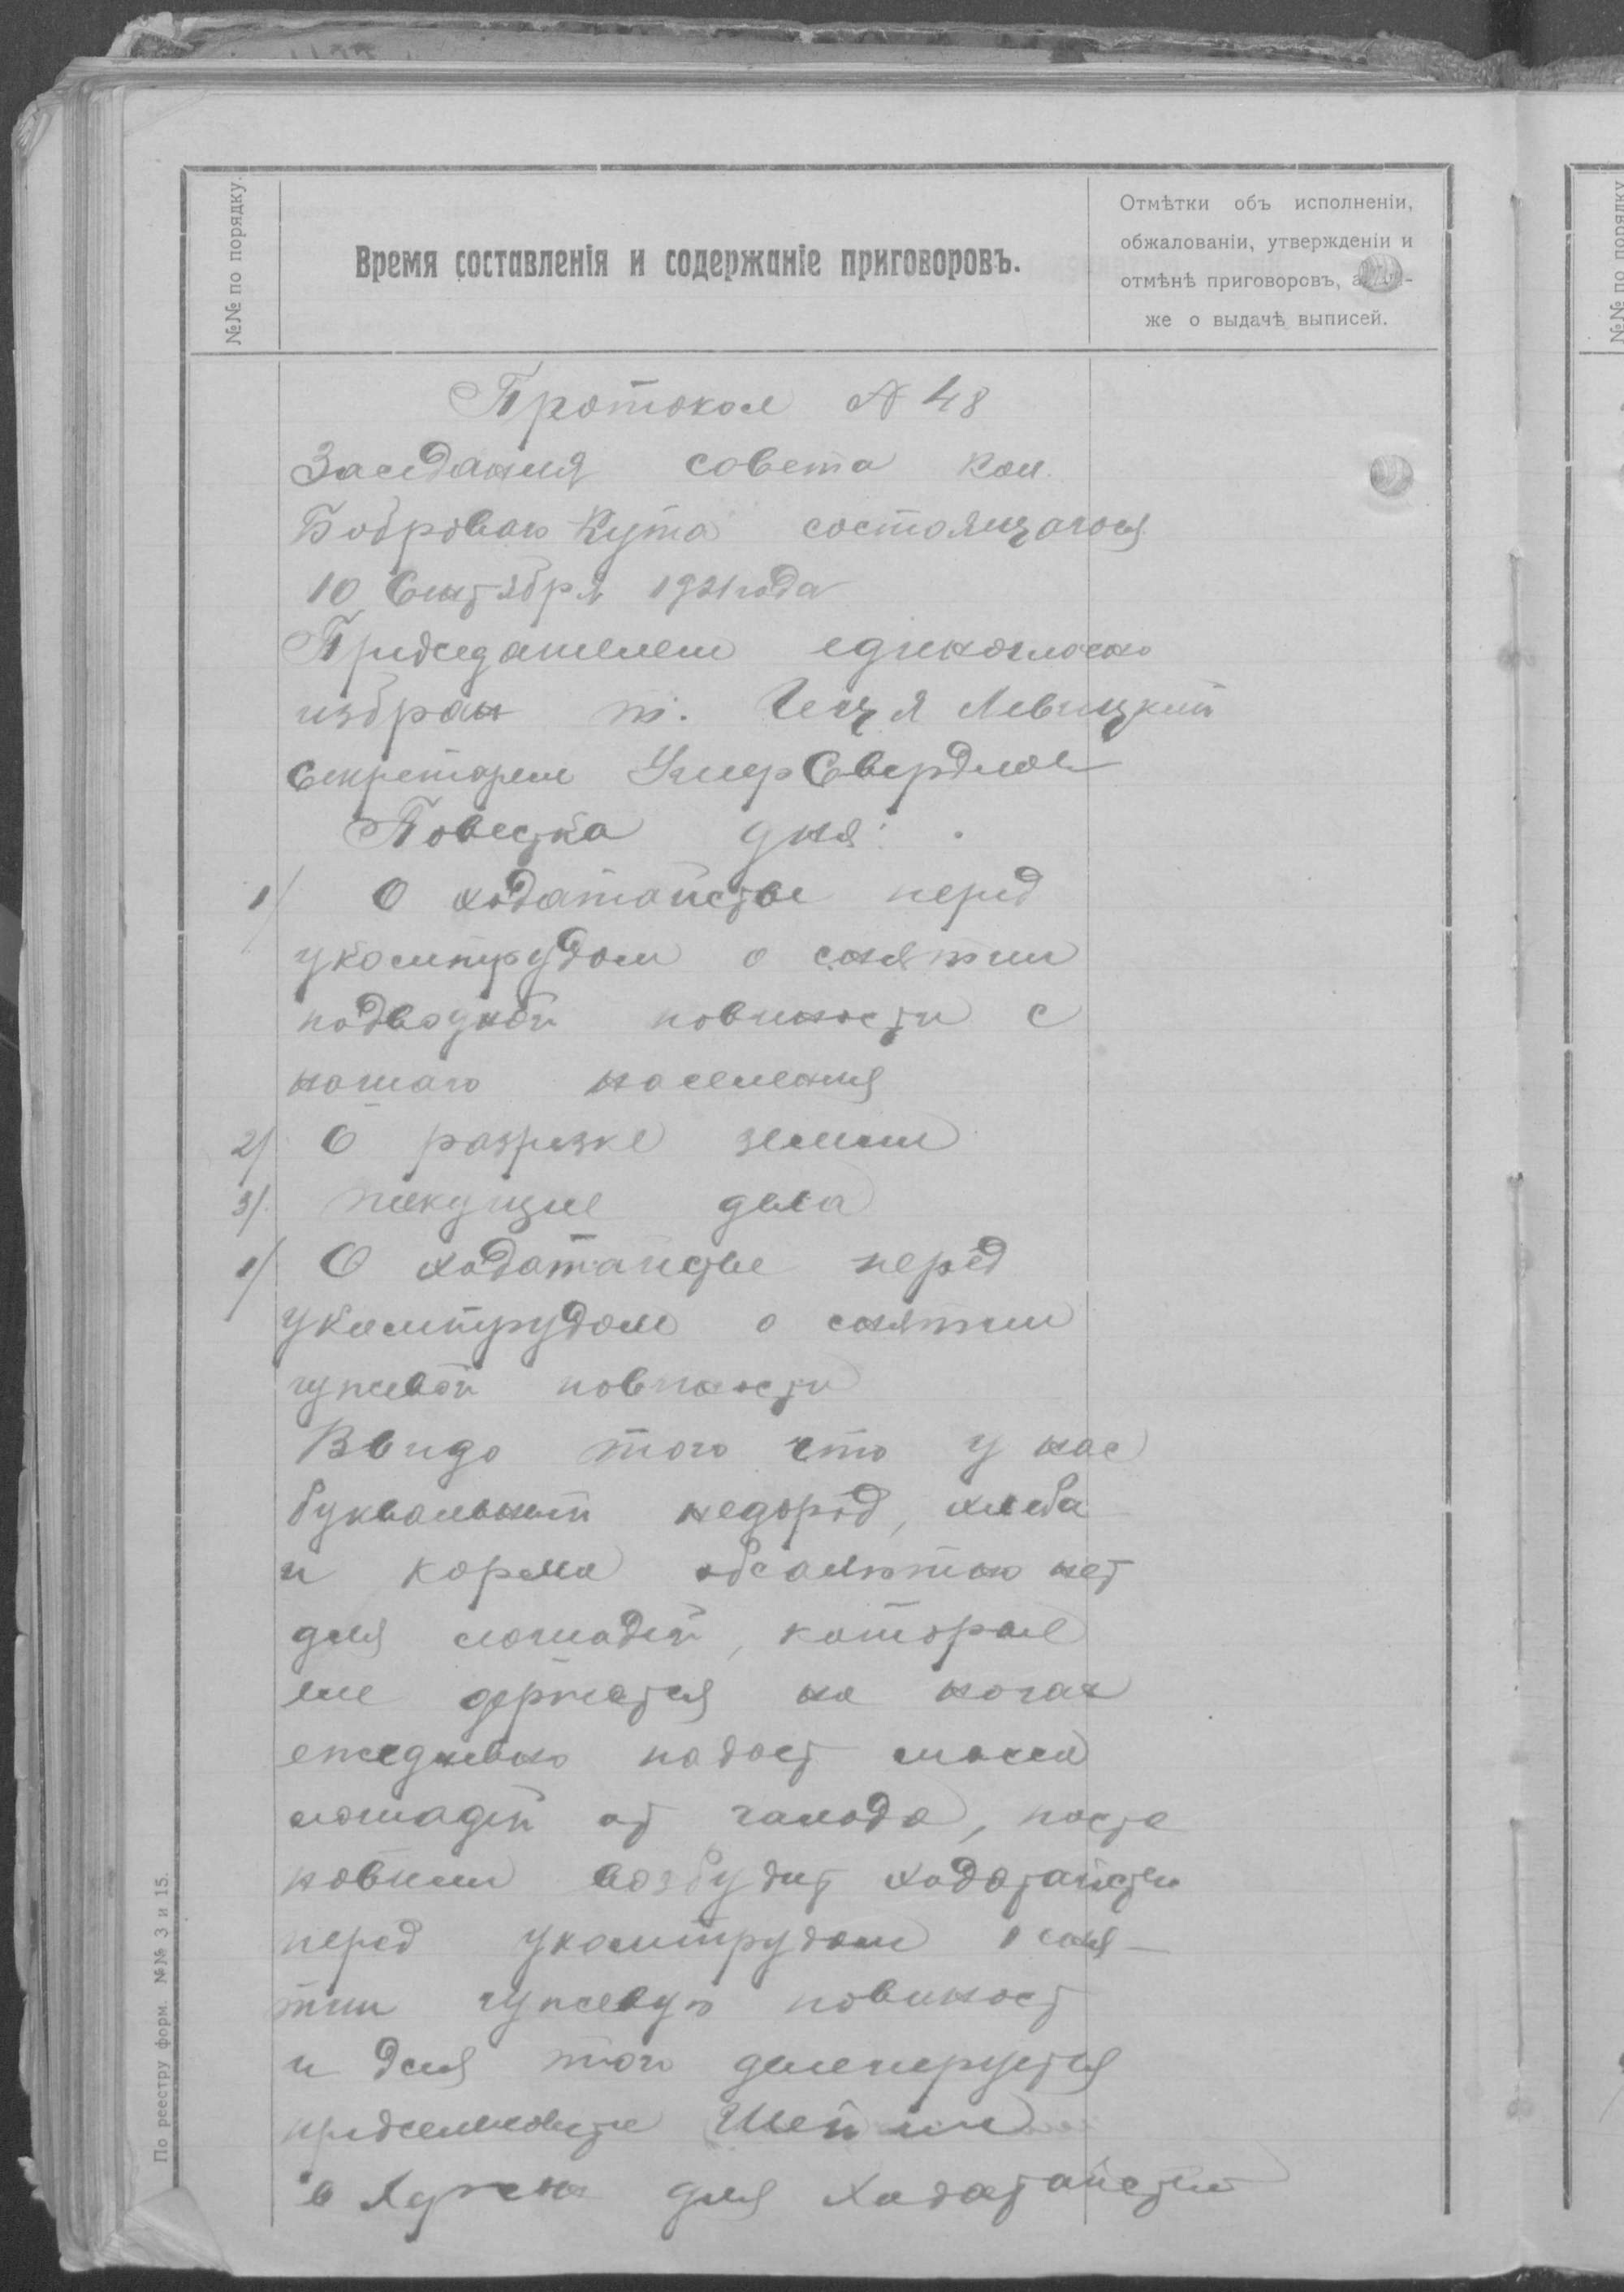 №№ по порядку.
Время составленія и содержаніе приговоровъ.
Отмѣтки объ исполненіи,
обжалованіи, утвержденіи и
отмѣнѣ приговоровъ, а
же о выдачѣ выписей.
Протокол № 48
Заседания совета кол.
Боброваго Кута состоящагося
10 Сентября 1921 года
Председателем единогласно
избран т. Левицкий
Секретарем Свердлов
Повестка дня:
1/ О ходатайстве перед
укомтрудом о снятии
подводной повиности с
нашаго населения
2/ О разрезке земли
3/ текущие дела
1/ О ходатайстве перед
укомтрудом о снятии
гужевой повиности
Ввидо того что у нас
буквальний недород, хлеба
и корма абсалютно нет
для лошадей, которые
еле держатся на ногах
ежедневно подает масса
лошадей от галода, поста
новили возбудит ходатайство
перед укомтрудом о сня-
тии гужевую повиност
и для того делегируется
предсельсовета Шейнин
в для Ходатайства
По реестру форм. №№ 3 и 15.
№№ по порядку